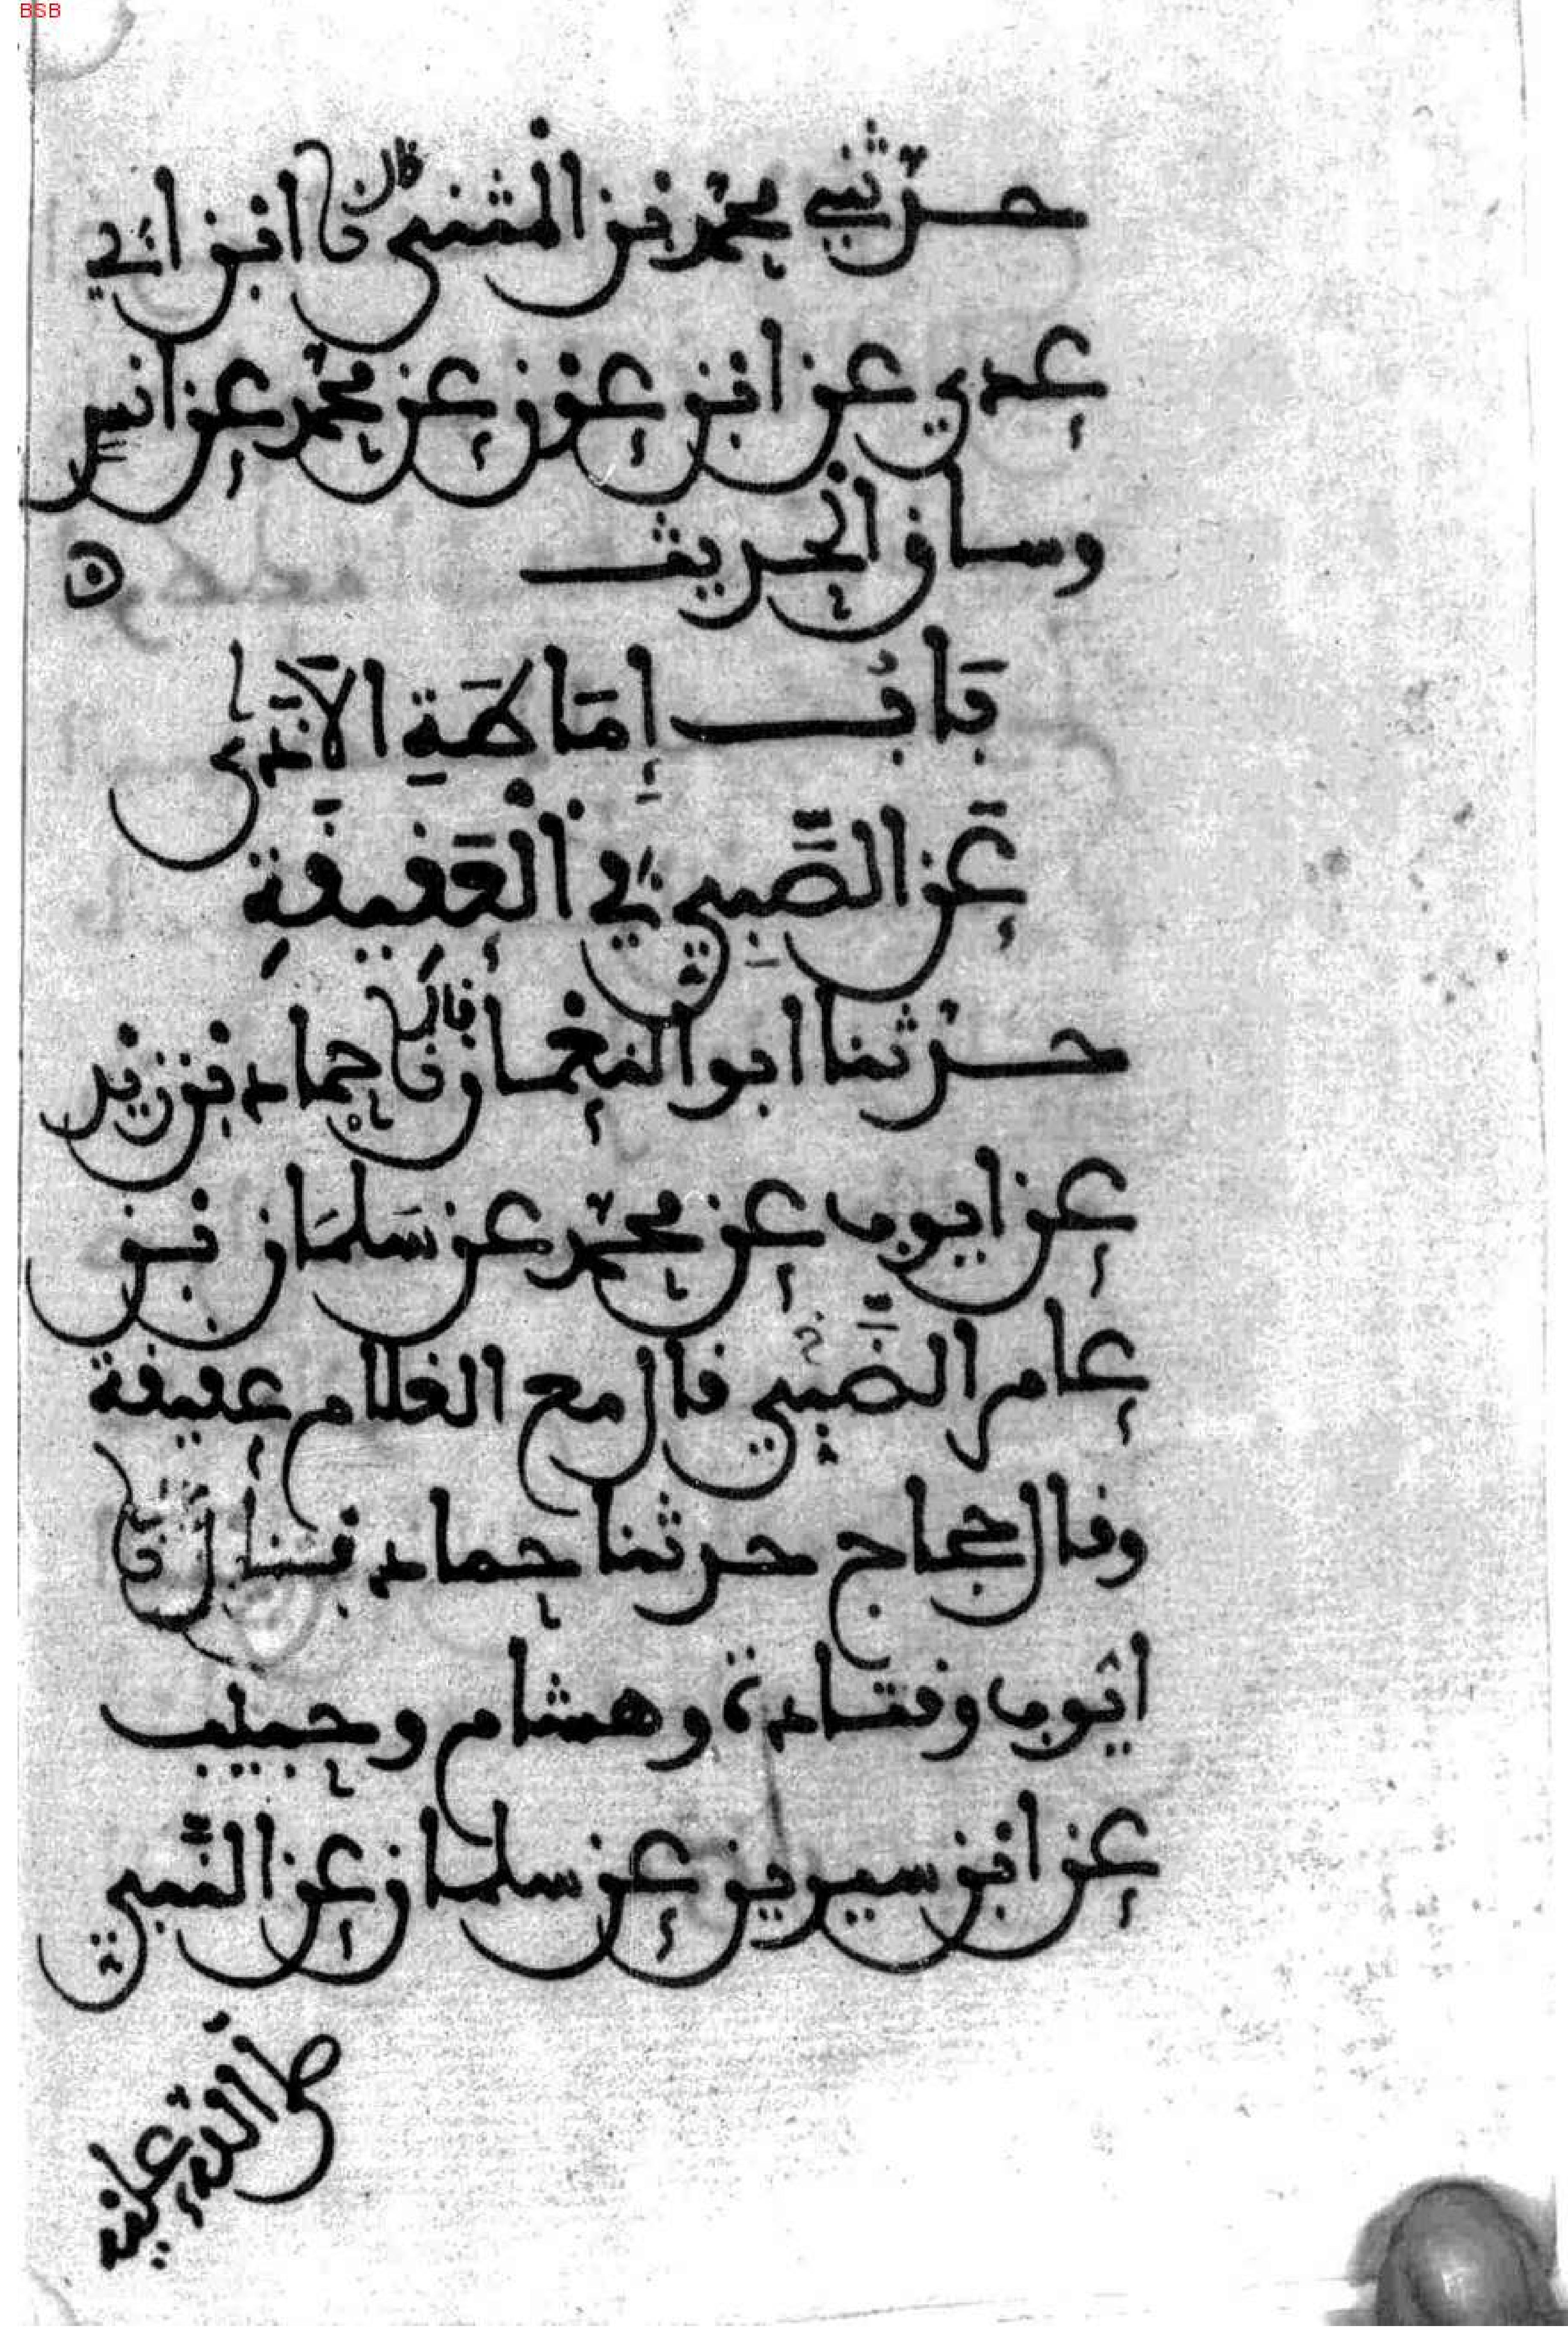 BSB
حدثني محمد بن المثنى قال نا ابن ابي
عدي عن ابن عون عن محمد عن انس
وساق الحديث
بَابُ إِمَاطَةِ الاَذَى
عَن الصَّبِيِّ فِي الْعَقِيقَةِ
حدثنا ابو النعمان قال نا حماد بن زيد
عن ايوب عن محمد عن سَلمَان بن
عامر الضَّبّيّ قال مع الغلام عقيقة
وقال حجاج حدثنا حماد بن قال نا
ايوب وقتادة وهشام وحبيب
عن ابن سيرين عن سلمان عن النَّبيّ
صلى الله عليه